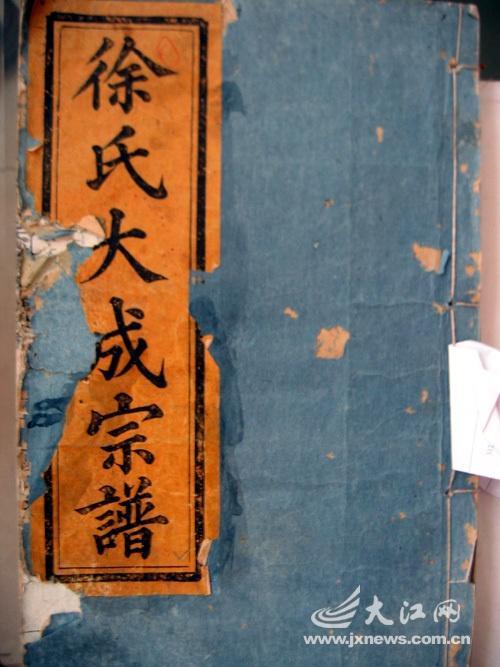 徐氏大成宗譜
大江网
www.jxnews.com.cn